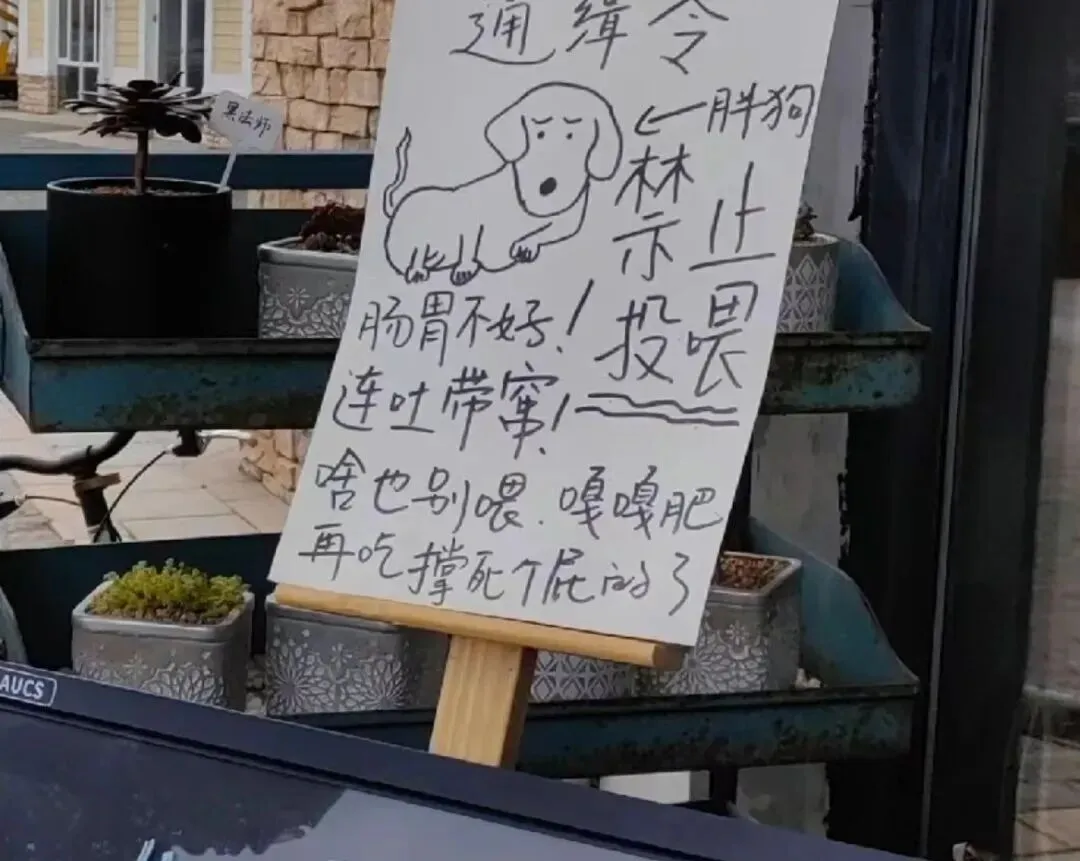 通缉令
←胖狗
禁止
投喂
肠胃不好!
连吐带窜!
啥也别喂.嘎嘎肥
再吃撑死个屁的了
黑法师
AUCS